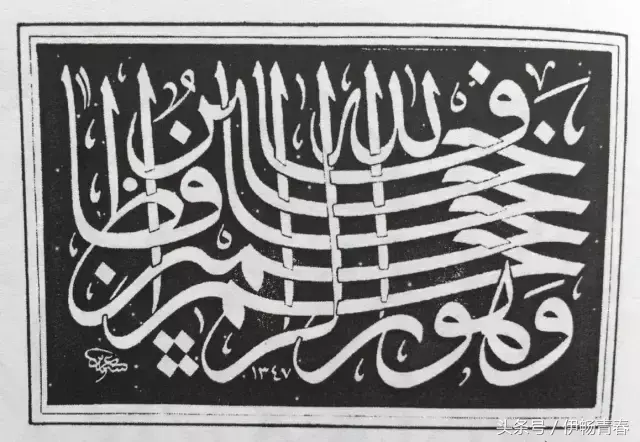 فالله خير حافظا
وهو ارحم الراحمين
١٣٤٧
头条号 / 伊畅青春